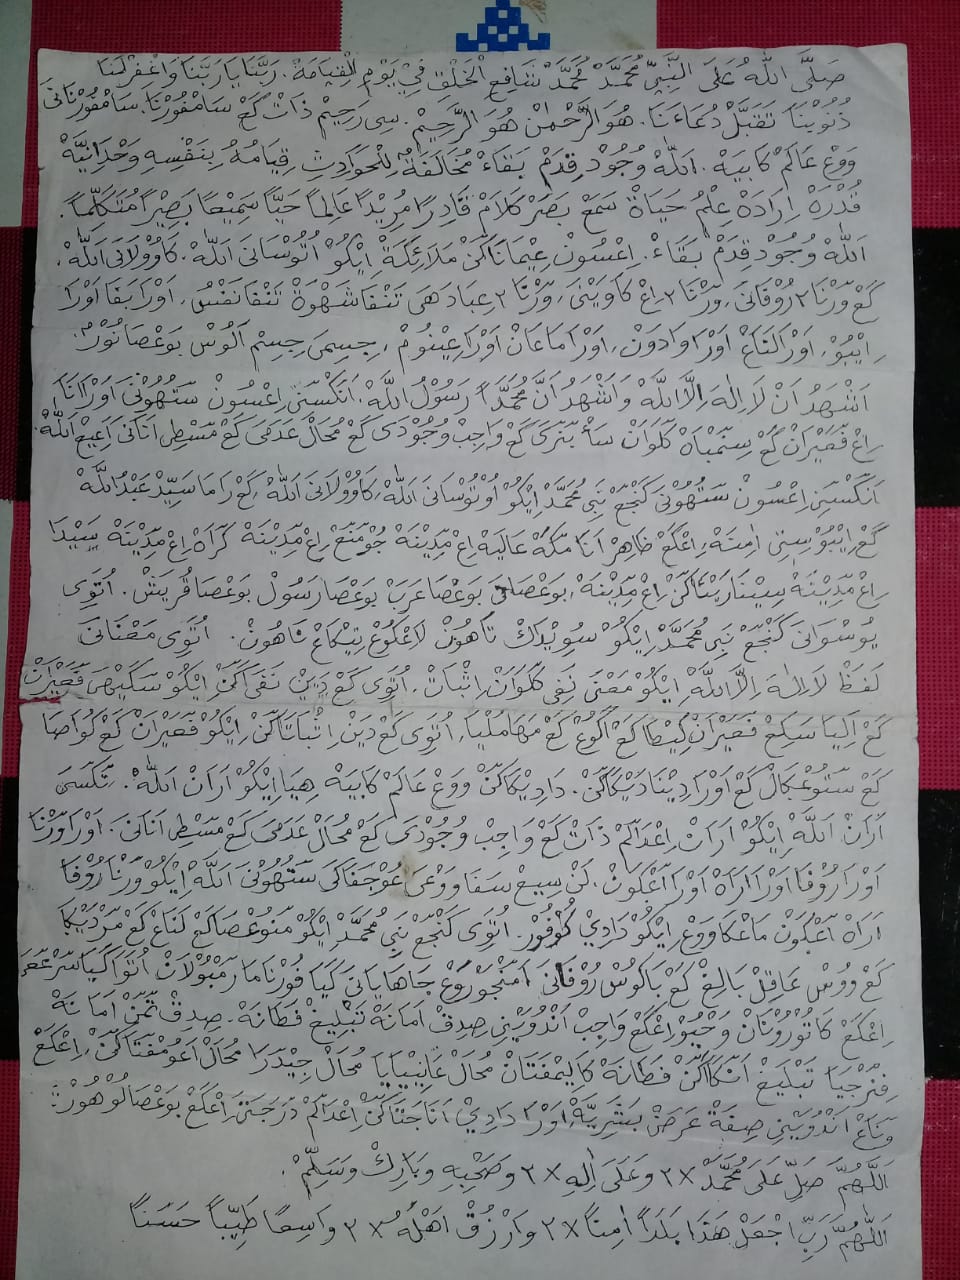 صَلَّى اللهُ عَلَى النَّبِيِّ مُحَمَّدْ مُحَمَّدْ شَافِعِ الْخَلْقِ فِيْ يَوْمِ الْقِيَامَةْ. رَبَّنَا يَا رَبَّنَا وَاغْفِرْ لَنَا
ذُنُوْبَنَا تَقَبَّلْ دُعَاءَنَا. هُوَ الرَّحْمٰنْ هُوَ الرَّحِيْمْ. سِى رَحِيْمْ ذَاتْ كَڠْ سَامْفُوْرْنَا. سَامْفُوْرْنَانَى
وَوڠْ عَالَمْ كَابَيَهْ. اَللهْ وُجُوْدْ قِدَمْ بَقَاءْ مُخَالَفَةُ لِلْحَوَادِثِ قِيَامُهُ بِنَفْسِهِ وَحْدَانِيَّةْ
قُدْرَةْ اِرَادَةْ عِلْمُ حَيَاةْ سَمَعْ بَصَرْ كَلَامْ قَادِرًا مُرِيْدًا عَالِمًا حَيًّا سَمِيْعًا بَصِيْرًا مُتَكَلِّمًا.
اَللهْ وُجُوْدْ قِدَمْ بَقَاءْ. اِڠْسُوْنْ ڠِيْمَانَاكَنْ مَلَائِكَةْ اِيْكُوْ اُتُوْسَانَى اَللهْ. كَاوُوْلَانَى اَللهْ.
كَڠْ وَرْنَا ٢ رُوْفَانَى، وَرْنَا ٢ اِڠْ كَاوَيْنَى، وَرْنَا ٢ عِبَادَهَى تَنْفَا شَهْوَةْ تَنْفَا نَفْسُ، اَوْرَا بَفَا اَوْرَا
اِيْبُوْ، اَوْرَا لَنَاڠْ اَوْرَا وَادَوْنْ، اَوْرَا مَاڠَانْ اَوْرَا ڠِيْنُوْمْ، جِسِيْمَى جِسِمْ اَلُوْسْ بَوڠْصَا نُوْرْ.
اَشْهَدُ اَنْ لَا اِلٰهَ اِلَّا اللهْ وَاَشْهَدُ اَنَّ مُحَمَّدًا رَسُوْلُ اللهْ. اَنَكْسَيْنِى اِڠْسُوْنْ سَتُهُوْنَى اَوْرَا نَانَا
فَڠَيْرَانْ كَڠْ سِنَمْبَاهْ كَلَوَانْ سَأْ بَنَرَى كَڠْ وَاجِبْ وُجُوْدَى كَڠْ مُحَالْ عَدَمَى كَڠْ مَسْطِى اَنَانَى اَڠِيڠْ اَللهْ.
اَنَكْسَيْنِى اِڠْسُوْنْ سَتُهُوْنَى كَنْجَڠْ نَبِى مُحَمَّدْ اِيْكُوْ اُوْتُوْسَانَى اَللهْ، كَاوُوْلَانَى اَللهْ، كَڠْ رَامَا سَيِّدْ عَبْدُاللهْ
كَڠْ اِيْبُوْ سِيْتِى اٰمِنَةْ، اِڠْكَڠْ ظَاهِرْ اَنَا مَكَّةْ عَالِيَهْ اِڠْ مَدِيْنَةْ جُوْمَنَڠْ اِڠْ مَدِيْنَةْ كَرَاهْ اِڠْ مَدِيْنَةْ سَيْدَا
اِڠْ مَدِيْنَةْ سِيْنَارَيْئَاكَنْ اِڠْ مَدِيْنَةْ، بَوڠْصَانَى بَوڠْصَا عَرَبْ بَوڠْصَا رَسُوْلْ بَوڠْصَا قُرَيْشْ. اُتَوِى
يُوْسْوَانَى كَنْجَڠْ نَبِى مُحَمَّدْ اِيْكُوْ سُوَيْدَكْ تَاهُوْنْ لَاڠْكُوڠْ تِيْكَاڠْ تَاهُوْنْ. اُتَوِى مَعْنَانَى
لَفَظْ لَا اِلٰهَ اِلَّا اللهْ اِيْكُوْ مَعْنَى نَفِى كَلَوَانْ اِثْبَاتْ. اُتَوِى كَڠْ دَيْنْ نَفَيْاكَنْ اِيْكُوْ سَكَيْهَى فَڠَيْرَانْ
كَڠْ لِيَا سَكِڠْ فَڠَيْرَانْ كِيْطَا كَڠْ اَكُوڠْ كَڠْ مَهَا مُلْيَا، اُتَوِى كَڠْ دَيْنْ اِثْبَاتَاكَنْ اِيْكُوْ فَڠَيْرَانْ كَڠْ كُوَاصَا
كَڠْ سَتُوڠْكَالْ كَڠْ اَوْرَا دِيْنَادَيْكَاكَنْ. دَادَيْكَاكَنْ وَوڠْ عَالَمْ كَابَيَهْ هِيَا اِيْكُوْ اَرَانْ اَللهْ. تَكَسَى
اَرَانْ اَللهْ اِيْكُوْ اَرَانْ اِڠْدَالَمْ ذَاتْ كَڠْ وَاجِبْ وُجُوْدَى كَڠْ مُحَالْ عَدَمَى كَڠْ مَسْطِى اَنَانَى. اَوْرَا وَرْنَا
اَوْرَا رُوْفَا اَوْرَا اَرَاهْ اَوْرَا اَڠْكَوْنْ. لَنْ سِيڠْ سَفَا وَوڠَى ڠُوْجَفَاكَى سَتُهُوْنَى اَللهْ اِيْكُوْ وَرْنَا رُوْفَا
اَرَاهْ اَڠْكَوْنْ مَاڠْكَا وَوڠْ اِيْكُوْ دَادِيْ كُوْفُوْرْ. اُتَوِى كَنْجَڠْ نَبِى مُحَمَّدْ اِيْكُوْ مَنُوڠْصَا كَڠْ لَنَاڠْ كَڠْ مَرْدَيْكَا
كَڠْ وُوْسْ عَاقِلْ بَالِغْ كَڠْ بَاكُوْسْ رُوْفَانَى اَمَنْجَوْرَوڠْ جَاهَايَانَى كَيَا فُوْرْنَامَا رَمْبُوْلَانْ اُتَوَا كَيَا سْرَڠَڠَى
اِڠْكَڠْ كَاتُوْرُوْنَانْ وَحْيُوْ اِڠْكَڠْ وَاجِبْ اَنْدُوَيْنِى صِدِقْ اَمَانَةْ تَبْلِيْغْ فَطَانَةْ. صِدِقْ تَمَنْ اَمَانَةْ
فِرْجَيَا تَبْلِيْغْ اَنَكَاكَنْ فَطَانَةْ كَالِيْمَفَتَانْ مُحَالْ ڠَانِيْيَايَا مُحَالْ جِيْدَرَا مُحَالْ اَڠُوْمْفَتَاكَنْ، اِڠْكَڠْ
وَنَاڠْ اَنْدُوَيْنِى صِفَةْ عَرَضْ بَشَرِيَّةْ، اَوْرَا دَادِيْ اَنَاجَتَاكَنْ اِڠْدَالَمْ دَرَجَتَى اِڠْكَڠْ بَوڠْصَا لُوْهُوْرْ.
اَللّٰهُمَّ صَلِّ عَلَى مُحَمَّدْ ٢X وَعَلَى اٰلِهِ ٢X وَصَحْبِهِ وَبَارِكْ وَسَلِّمْ.
اَللّٰهُمَّ رَبِّ اجْعَلْ هٰذَا بَلَدًا اٰمِنًا ٢X وَارْزُقْ اَهْلَهُ ٢X وَاسِعًا طَيِّبًا حَسَنًا